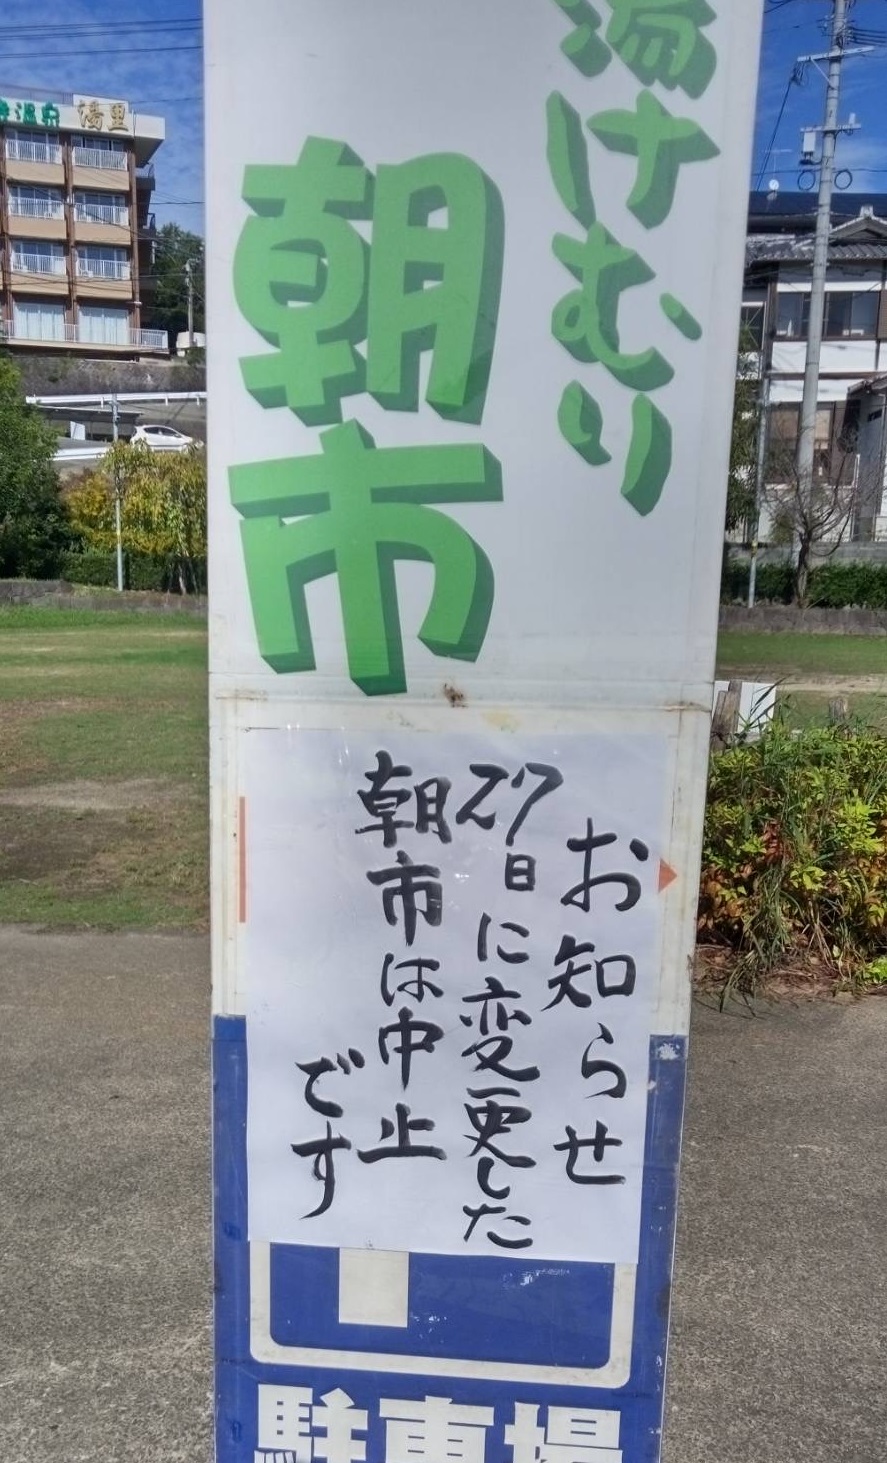 湯けむり
朝市
お知らせ
27日に変更した
朝市は中止
です
駐車場
温泉 湯里